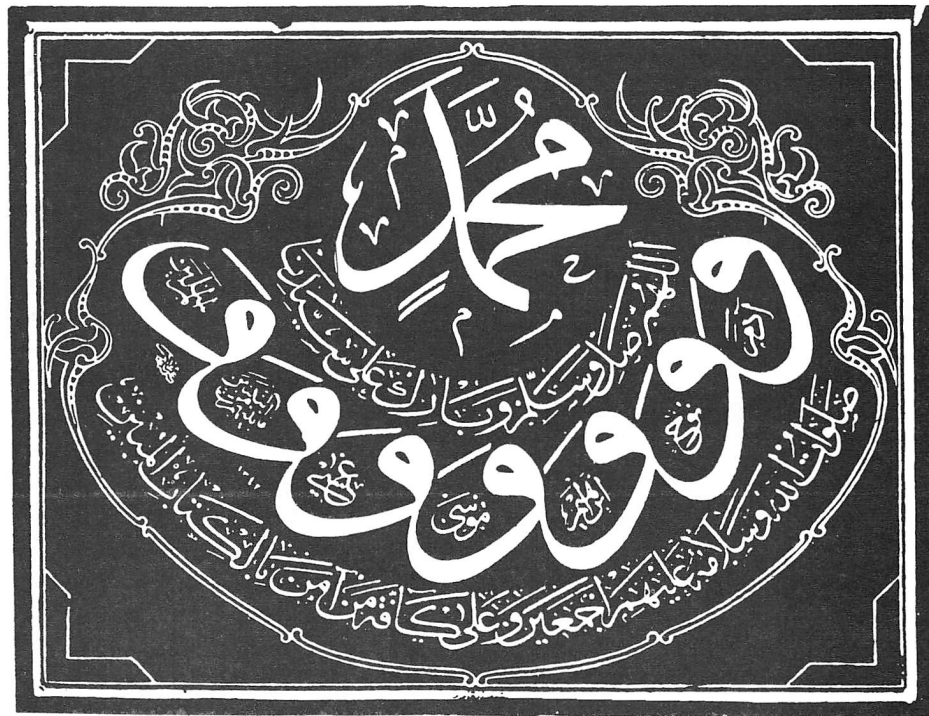 اللهم صل وسلم وبارك على سيدنا
محمد
و آدم و نوح و ابراهيم و موسى و عيسى و
صلوات الله وسلامه عليهم اجمعين وعلى كافة من آمن بالكتاب المبين